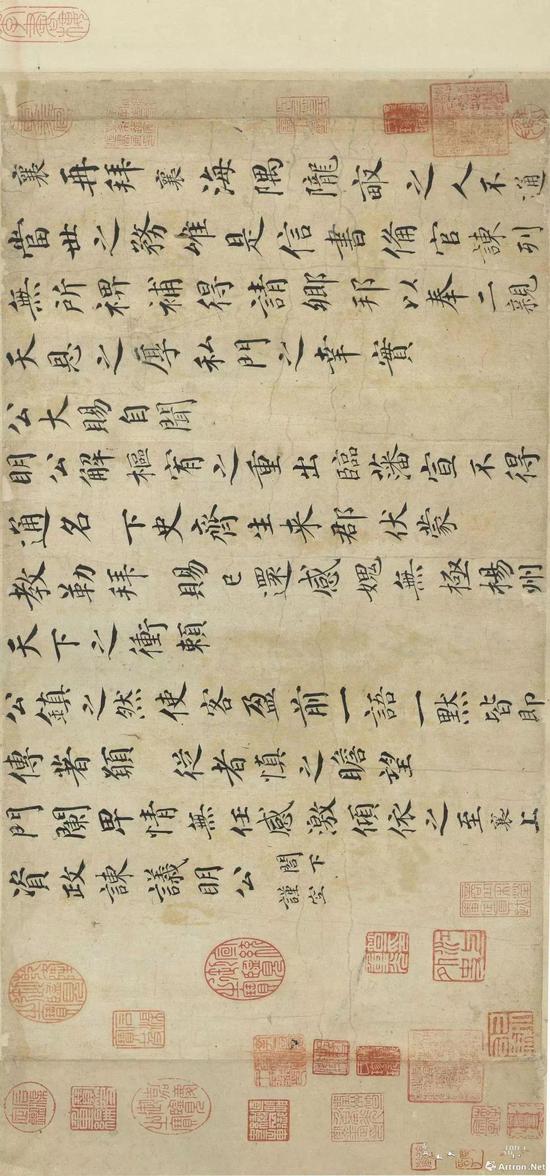 襄再拜襄海隅隴畝之人不通
當世之務唯是信書備官諫列
無所裨補得請鄉邦以奉二親
天恩之厚私門之幸實
公大賜自聞
明公解樞宥之重出臨藩宣不得
通名下史齊生来郡伏蒙
教勒拜賜已還感媿無極楊州
天下之衝賴
公鎮之然使客盈前一語一默皆即
傳著願從者慎之瞻望
門闌卑情無任感激傾依之至襄上
資政諫議明公閤下謹空
Artron.Net